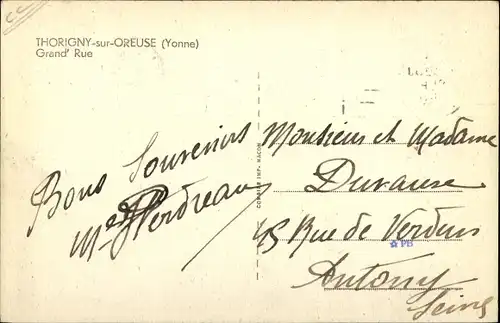 THORIGNY-sur-OREUSE (Yonne)
Grand' Rue
Bons Souvenirs
Perdreau
COMBIER IMP. MACON
Monsieur et Madame
15 Rue de Verdun
☆ PB
Antony
Seine